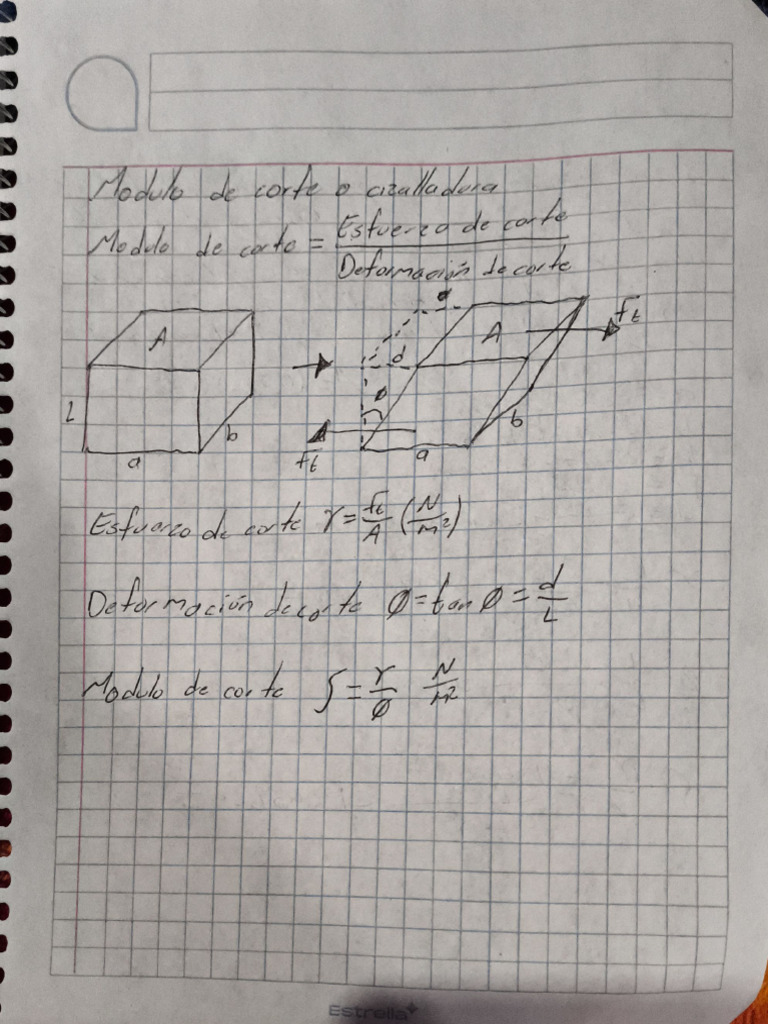 Modulo de corte o cizalladura
Modulo de corte = Esfuerzo de corte
Deformación de corte
A
L
a
b
d
d
ϕ
A
Ft
Ft
a
b
Esfuerzo de corte γ = Ft/A (N/m²)
Deformación de corte ϕ = tan ϕ = d/L
Modulo de corte S = γ/ϕ N/m²
Estrella